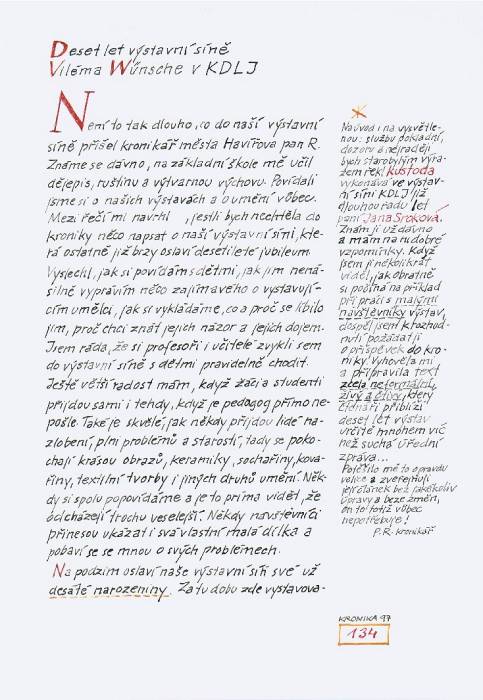 Deset let výstavní síně
Viléma Wünsche v KDLJ
Není to tak dlouho, co do naší výstavní
síně přišel kronikář města Havířova pan R.
Známe se dávno, na základní škole mě učil
dějepis, ruštinu a výtvarnou výchovu. Povídali
jsme si o našich výstavách a o umění vůbec.
Mezi řečí mi navrhl, jestli bych nechtěla do
kroniky něco napsat o naší výstavní síni, kte-
rá ostatně již brzy oslaví desetileté jubileum
Vyslechl, jak si povídám s dětmi, jak jim nená-
silně vyprávím něco zajímavého o vystavují-
cím umělci, jak si vykládáme, co a proč se líbilo
jim, proč chci znát jejich názor a jejich dojem.
Jsem ráda, že si profesoři i učitelé zvykli sem
do výstavní síně s dětmi pravidelně chodit.
Ještě větší radost mám, když žáci a studenti
přijdou sami i tehdy, když je pedagog přímo ne-
pošle. Také je skvělé, jak někdy přijdou lidé na-
zlobení, plni problémů a starostí, tady se poko-
chají krásou obrazů, keramiky, sochařiny, kova-
řiny, textilní tvorby i jiných druhů umění. Něk-
dy si spolu popovídáme a je to prima vidět, že
odcházejí trochu veselejší. Někdy návštěvníci
přinesou ukázat i svá vlastní malá dílka a
pobaví se se mnou o svých problémech.
Na podzim oslaví naše výstavní síň své už
desáté narozeniny. Za tu dobu zde vystavova-
Na úvod i na vysvětle-
nou: službu pokladní,
dozoru a nejraději
bych starobylým výra-
zem řekl kustoda
vykonává ve výstav-
ní síni KDLJ již
dlouhou řadu let
paní Jana Sroková.
Znám ji už dávno
a mám na ni dobré
vzpomínky. Když
jsem ji několikrát
viděl, jak obratně
si počíná na příklad
při práci s malými
návštěvníky výstav,
dospěl jsem k rozhod-
nutí požádat ji
o příspěvek do kro-
niky. Vyhověla mi
a připravila text
zcela neformální,
živý a čtivý, který
čtenáři přiblíží
deset let výstav
určitě mnohem víc
než suchá úřední
zpráva...
Potěšilo mě to opravdu
velice a zveřejňuji
její článek bez jakékoliv
úpravy a beze změn,
on to totiž vůbec
nepotřebuje!
P.R. kronikář
KRONIKA 97
134